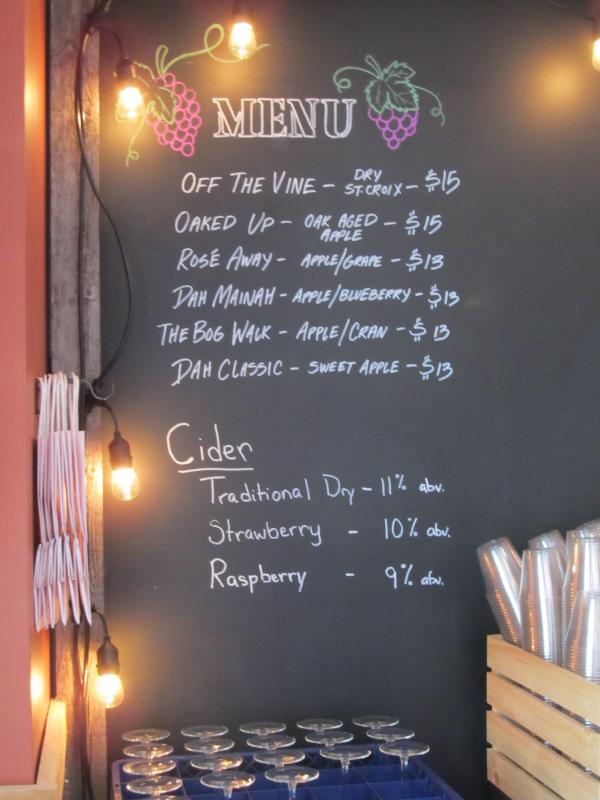 MENU
OFF THE VINE - DRY ST. CROIX - $15
OAKED UP - OAK AGED APPLE - $15
ROSÉ AWAY - APPLE/GRAPE - $13
DAH MAINAH - APPLE/BLUEBERRY - $13
THE BOG WALK - APPLE/CRAN - $13
DAH CLASSIC - SWEET APPLE - $13
Cider
Traditional Dry - 11% abv.
Strawberry - 10% abv.
Raspberry - 9% abv.